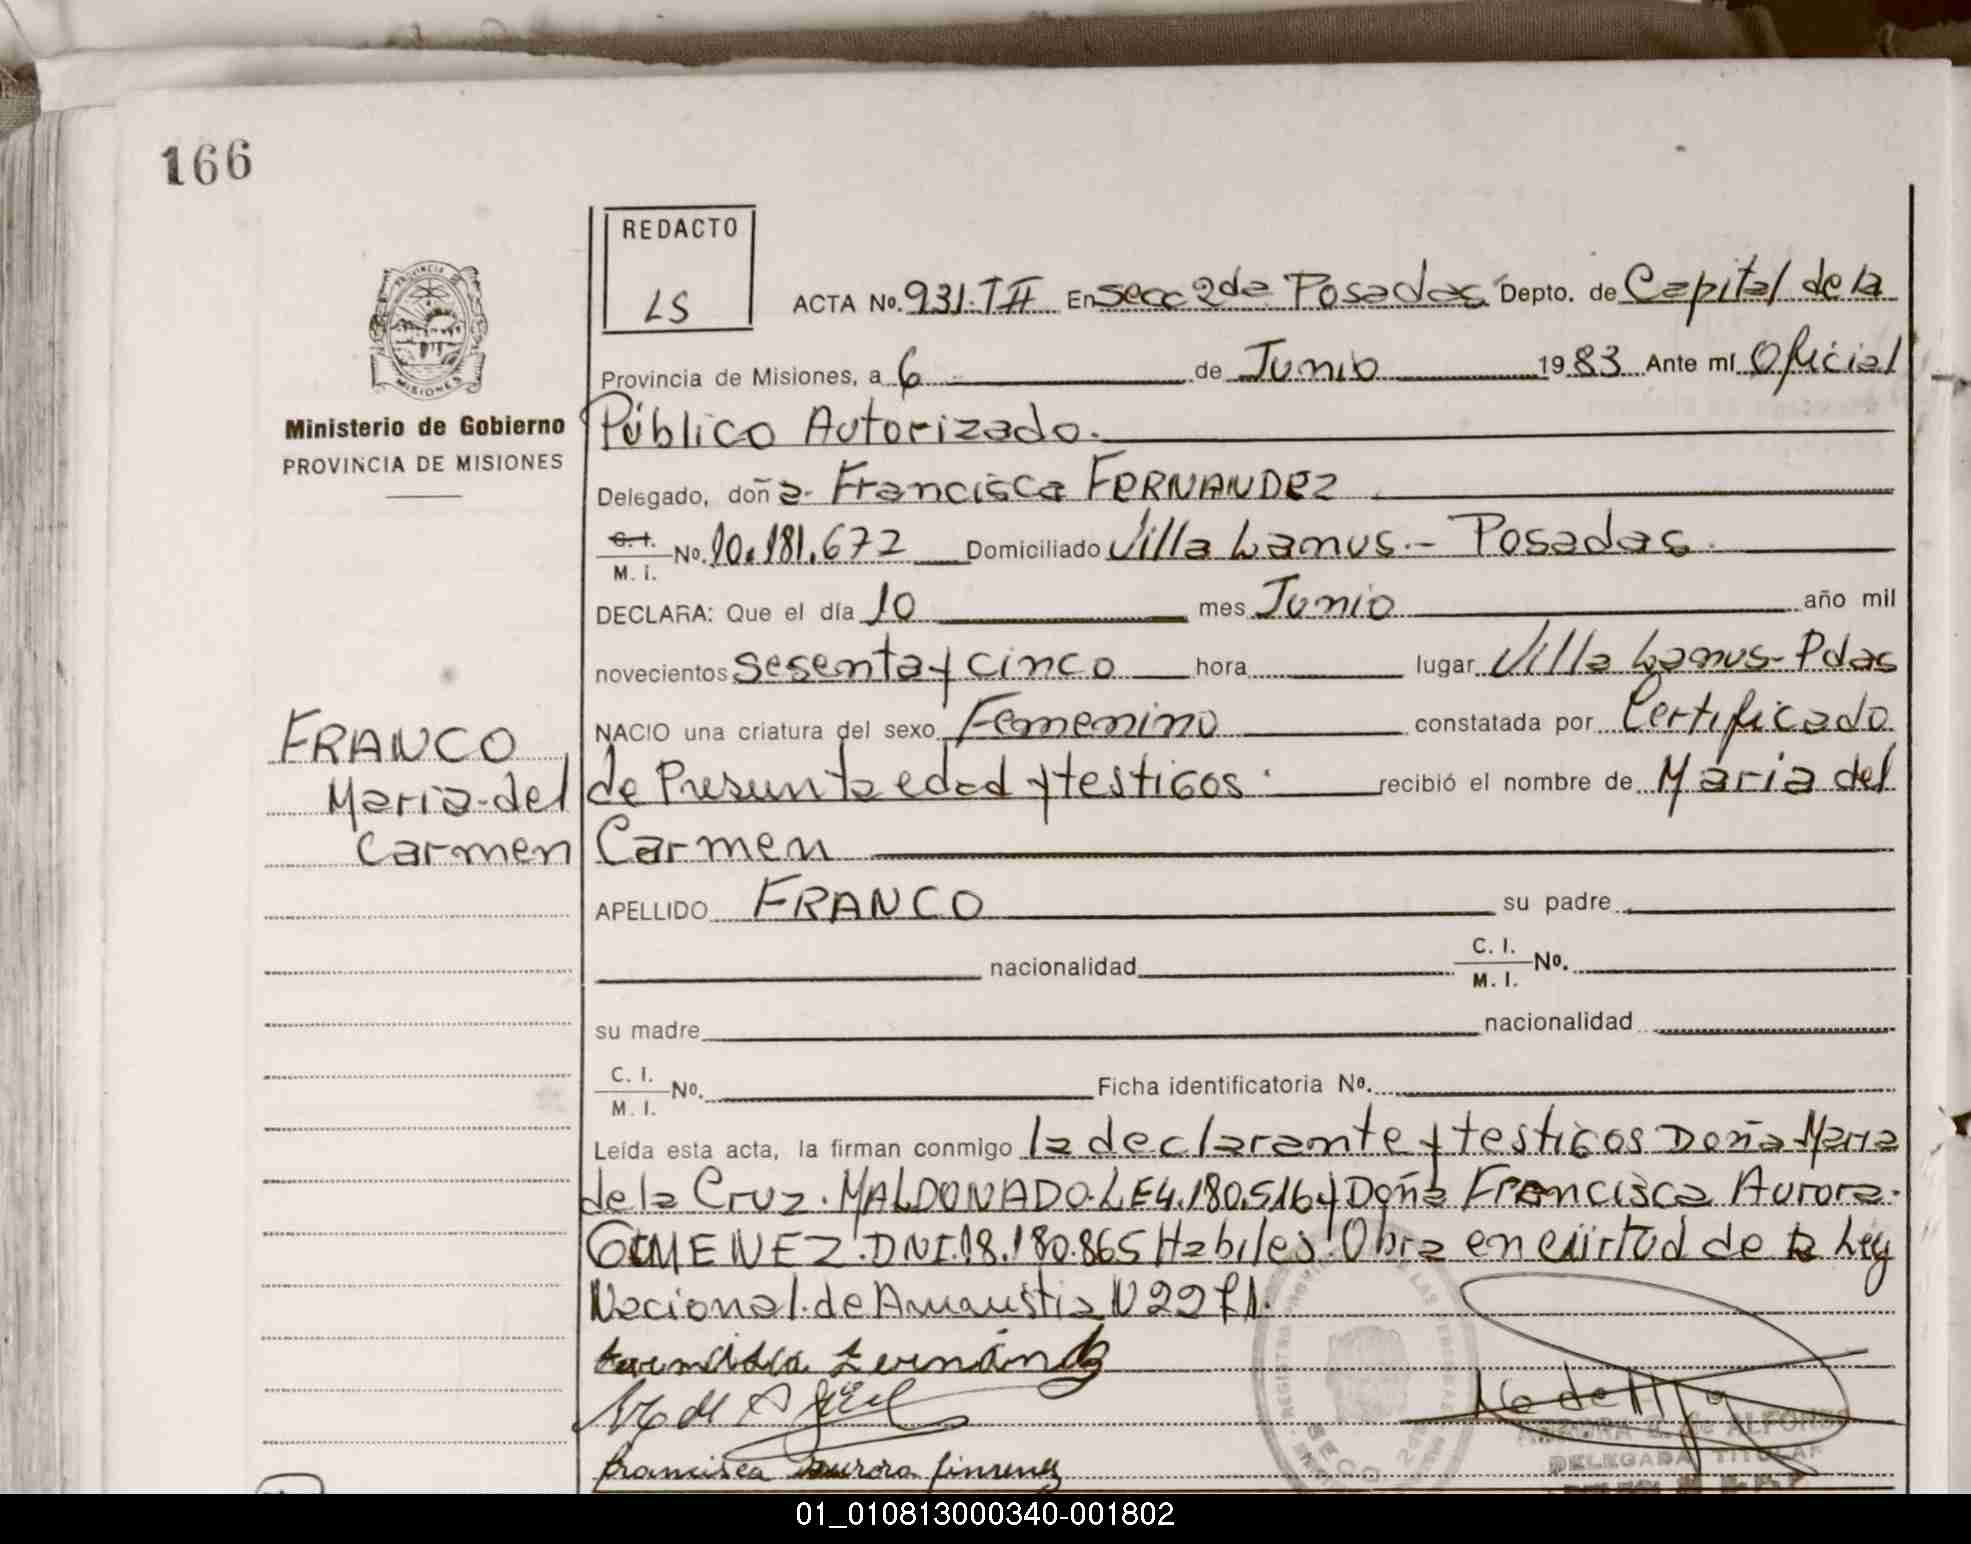 166
REDACTO
LS
ACTA No. 931. TII En secc 2da Posadas Depto. de Capital de la
Provincia de Misiones, a 6 de Junio 1983 Ante mí Oficial
Público Autorizado.
PROVINCIA DE
MISIONES
Ministerio de Gobierno
PROVINCIA DE MISIONES
Delegado, doña Francisca FERNANDEZ
C. I. / M. i. No. 10.181.672 Domiciliado Villa Lanus.- Posadas.
DECLARA: Que el día 10 mes Junio año mil
novecientos sesenta y cinco hora lugar Villa Lanus- Pdas
NACIO una criatura del sexo Femenino constatada por Certificado
de Presunta edad y testigos. recibió el nombre de Maria del
Carmen
FRANCO
Maria-del
Carmen
APELLIDO FRANCO su padre
nacionalidad C. I. / M. I. No.
su madre nacionalidad
C. I. / M. I. No. Ficha identificatoria No.
Leída esta acta, la firman conmigo la declarante y testigos Doña Maria
de la Cruz. MALDONADO. LE4.180.516 y Doña Francisca Aurora.
GIMENEZ. DNI.18.180.865 Habiles. Obra en virtud de la Ley
Nacional. de Amnistia
Fernández
Francisca Aurora Jimenez
DELEGADA TITULAR
01_010813000340-001802